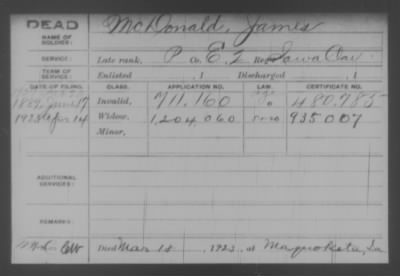 DEAD
McDonald, James
NAME OF SOLDIER:
SERVICE:
Late rank, P Co. E, 2 Reg. Iowa Cav
TERM OF SERVICE:
Enlisted , 1 Discharged , 1
DATE OF FILING. CLASS. APPLICATION NO. LAW. CERTIFICATE NO.
1889, June 17 Invalid, 711,160 480,785
1923 Apr 14 Widow, 1,204,060 935007
Minor,
ADDITIONAL SERVICES:
REMARKS:
Died Mar 18, 1923, at Maquoketa, Ia